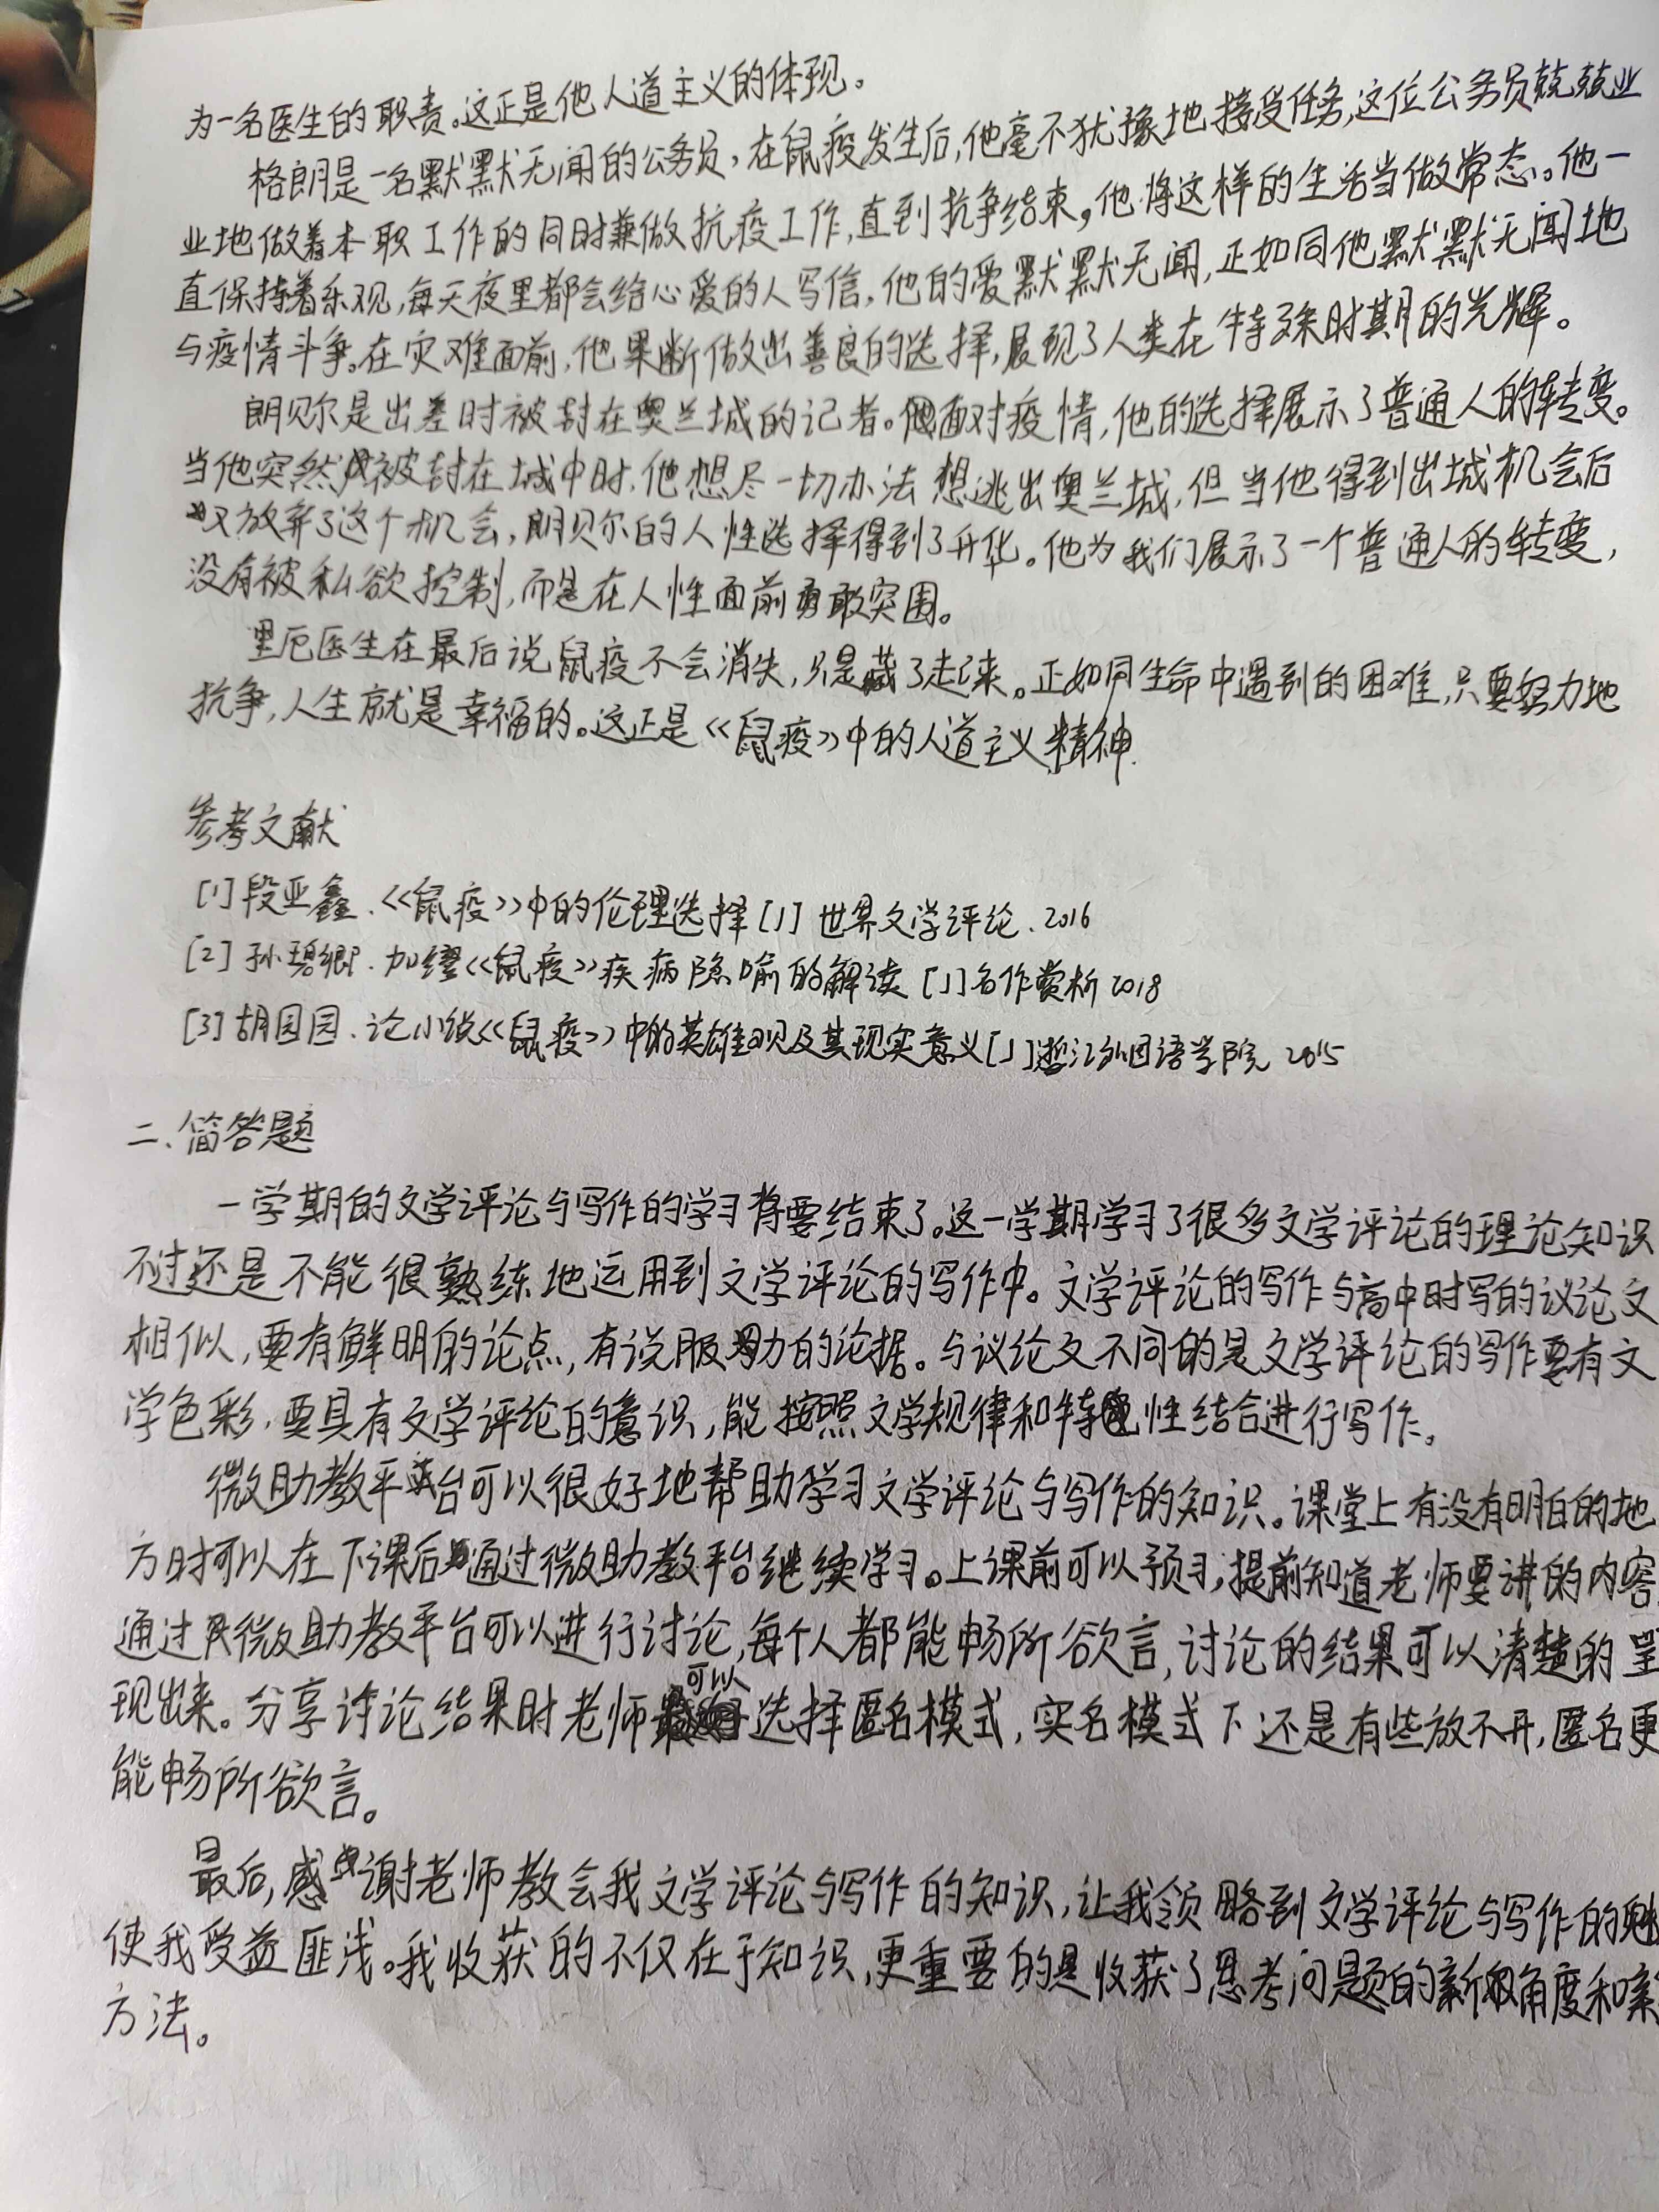 为一名医生的职责。这正是他人道主义的体现。
格朗是一名默默无闻的公务员，在鼠疫发生后，他毫不犹豫地接受任务，这位公务员兢兢业
业地做着本职工作的同时兼做抗疫工作，直到抗争结束，他将这样的生活当做常态。他一
直保持着乐观，每天夜里都会给心爱的人写信，他的爱默默无闻，正如同他默默无闻地
与疫情斗争。在灾难面前，他果断做出善良的选择，展现了人类在特殊时期的光辉。
朗贝尔是出差时被封在奥兰城的记者。面对疫情，他的选择展示了普通人的转变。
当他突然被封在城中时，他想尽一切办法想逃出奥兰城，但当他得到出城机会后
又放弃了这个机会，朗贝尔的人性选择得到了升华。他为我们展示了一个普通人的转变，
没有被私欲控制，而是在人性面前勇敢突围。
里厄医生在最后说鼠疫不会消失，只是藏了起来。正如同生命中遇到的困难，只要努力地
抗争，人生就是幸福的。这正是《鼠疫》中的人道主义精神.
参考文献
[1]段亚鑫.《鼠疫》中的伦理选择[J] 世界文学评论.2016
[2]孙碧卿.加缪《鼠疫》疾病隐喻的解读[J]名作赏析2018
[3]胡园园.论小说《鼠疫》中的英雄观及其现实意义[J]浙江外国语学院 2015
二、简答题
一学期的文学评论与写作的学习将要结束了。这一学期学习了很多文学评论的理论知识
不过还是不能很熟练地运用到文学评论的写作中。文学评论的写作与高中时写的议论文
相似，要有鲜明的论点，有说服力的论据。与议论文不同的是文学评论的写作要有文
学色彩，要具有文学评论的意识，能按照文学规律和特性结合进行写作。
微助教平台可以很好地帮助学习文学评论与写作的知识。课堂上有没有明白的地
方时可以在下课后通过微助教平台继续学习。上课前可以预习，提前知道老师要讲的内容.
通过微助教平台可以进行讨论，每个人都能畅所欲言，讨论的结果可以清楚的呈
现出来。分享评论结果时老师可以选择匿名模式，实名模式下还是有些放不开，匿名更
能畅所欲言。
最后，感谢老师教会我文学评论与写作的知识，让我领略到文学评论与写作的魅
使我受益匪浅。我收获的不仅在于知识，更重要的是收获了思考问题的新角度和新
方法。